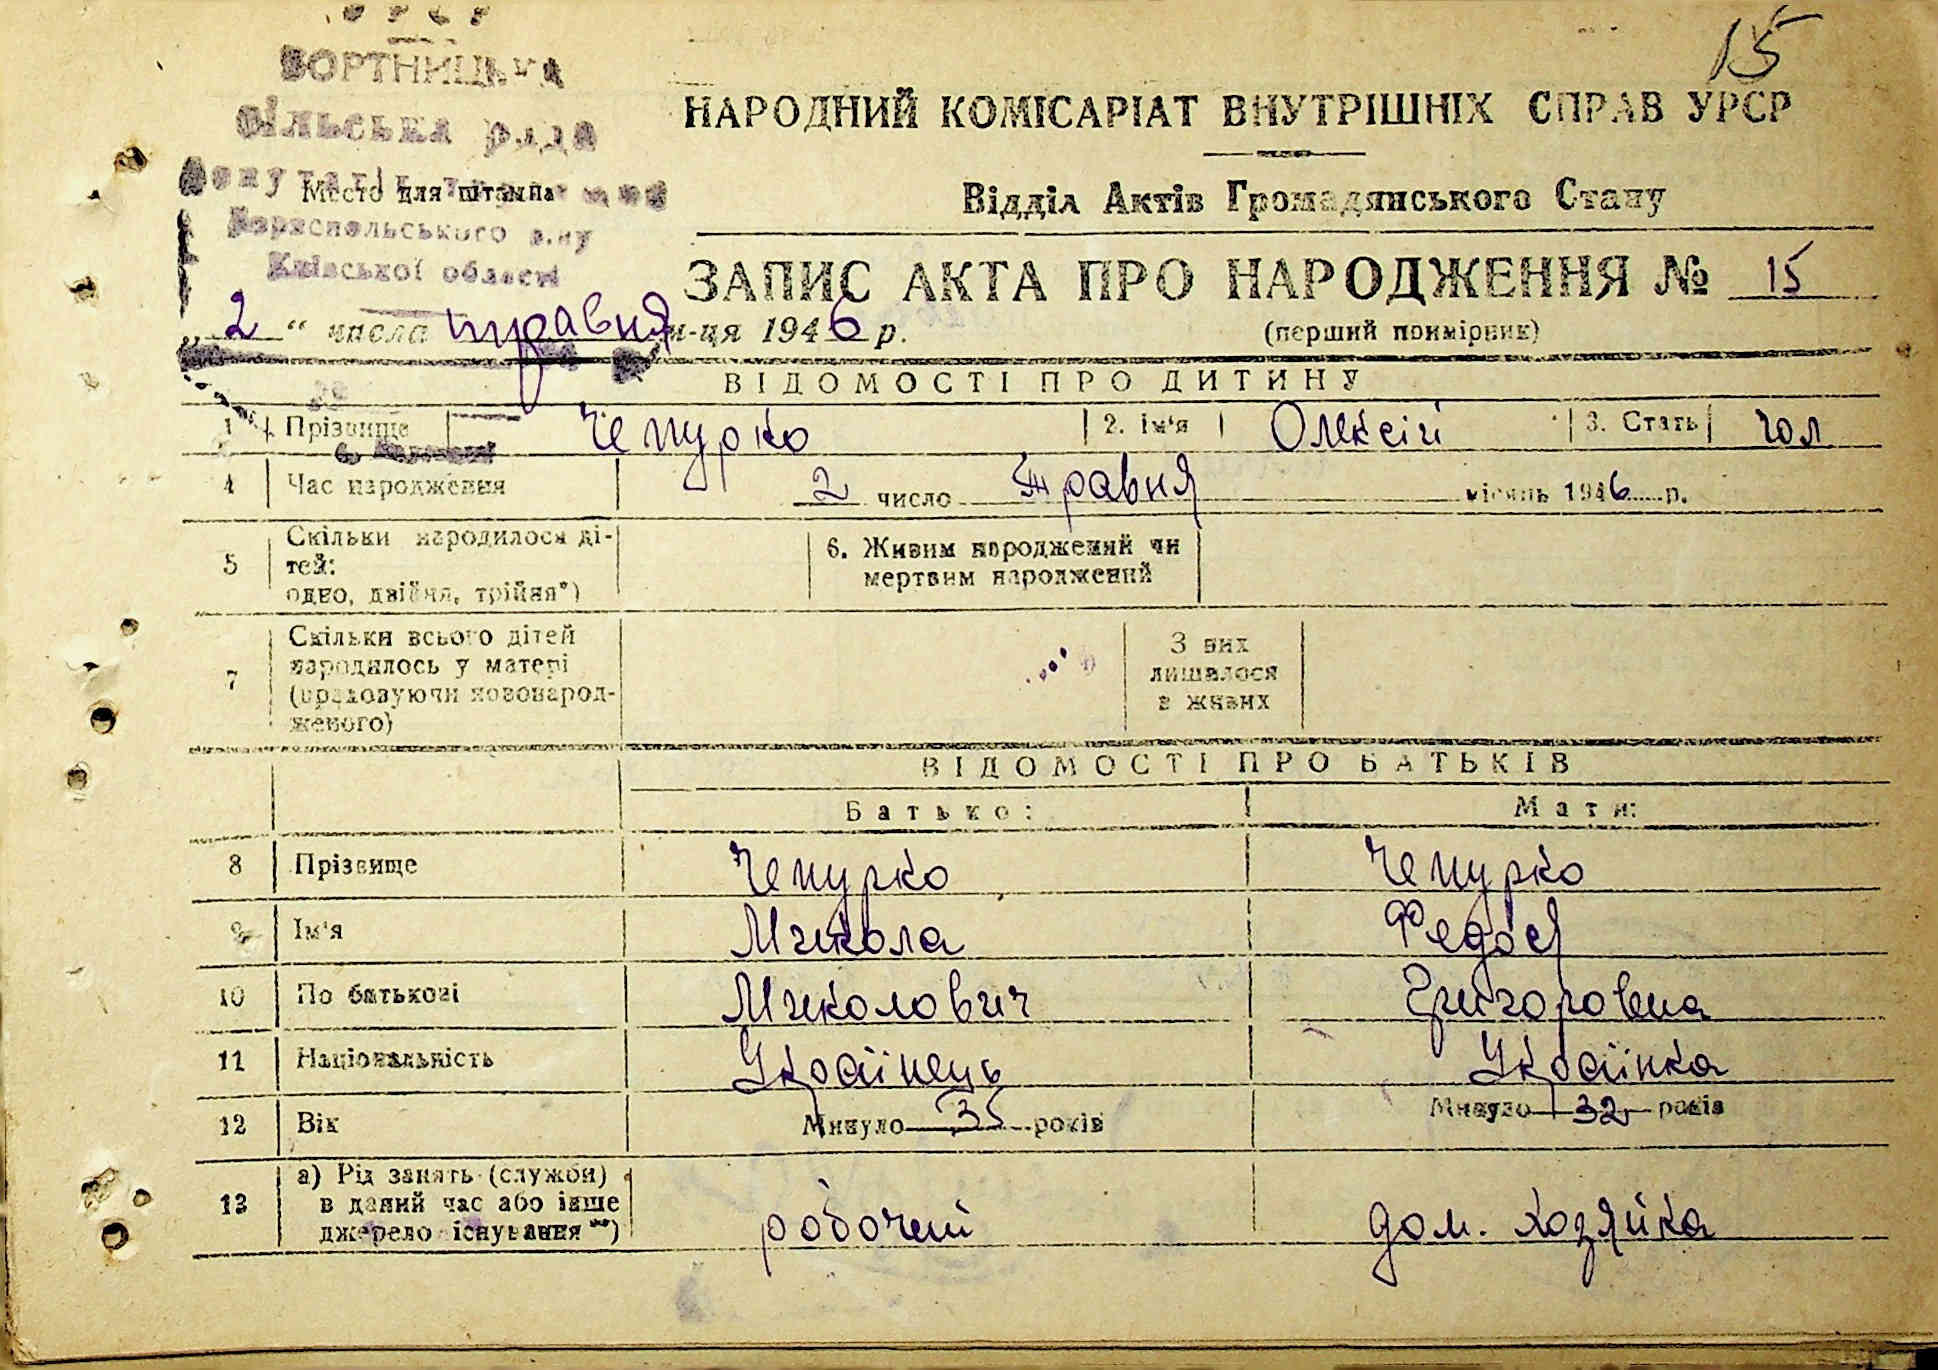 15
УРСР
БОРТНИЦЬКА
сільська рада
Місто для штампа
Бориспольського р-ну
Київської області
НАРОДНИЙ КОМІСАРІАТ ВНУТРІШНІХ СПРАВ УРСР
Відділ Актів Громадянського Стану
ЗАПИС АКТА ПРО НАРОДЖЕННЯ № 15
(перший примірник)
„2“ числа травня м-ця 1946 р.
ВІДОМОСТІ ПРО ДИТИНУ
1 Прізвище Чепурко 2. Ім'я Олексій 3. Стать чол
4 Час народження 2 число травня місяць 1946 р.
5 Скільки народилося ді-
тей:
одно, двійня, трійня*)
6. Живим народжений чи
мертвим народжений
7 Скільки всього дітей
народилось у матері
(враховуючи новонарод-
женого)
З них
лишилося
в живих
ВІДОМОСТІ ПРО БАТЬКІВ
Батько: Мати:
8 Прізвище Чепурко Чепурко
9 Ім'я Микола Федося
10 По батькові Миколович Григоровна
11 Національність Українець Українка
12 Вік Минуло 35 років Минуло 32 років
13 а) Рід занять (служби)
в даний час або інше
джерело існування **)
робочий дом. хозяйка